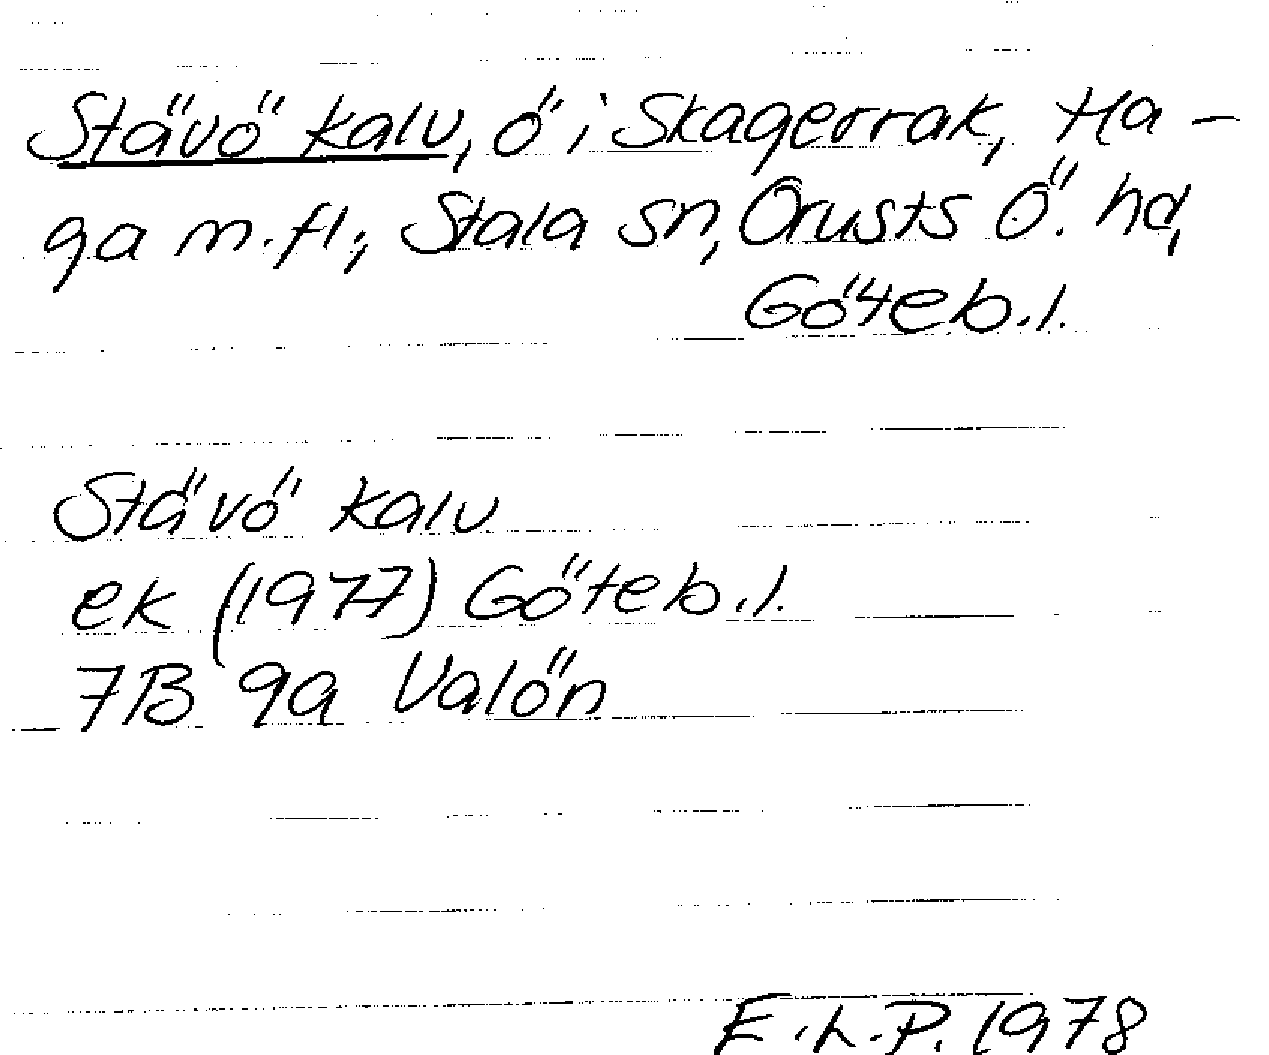 Stävö kalv, ö i Skagerrak, Ha-
ga m.fl., Stala sn, Orusts Ö. hd,
Göteb.l.
Stävö kalv
ek (1977) Göteb.l.
7B 9a Valön
E.L.P. 1978